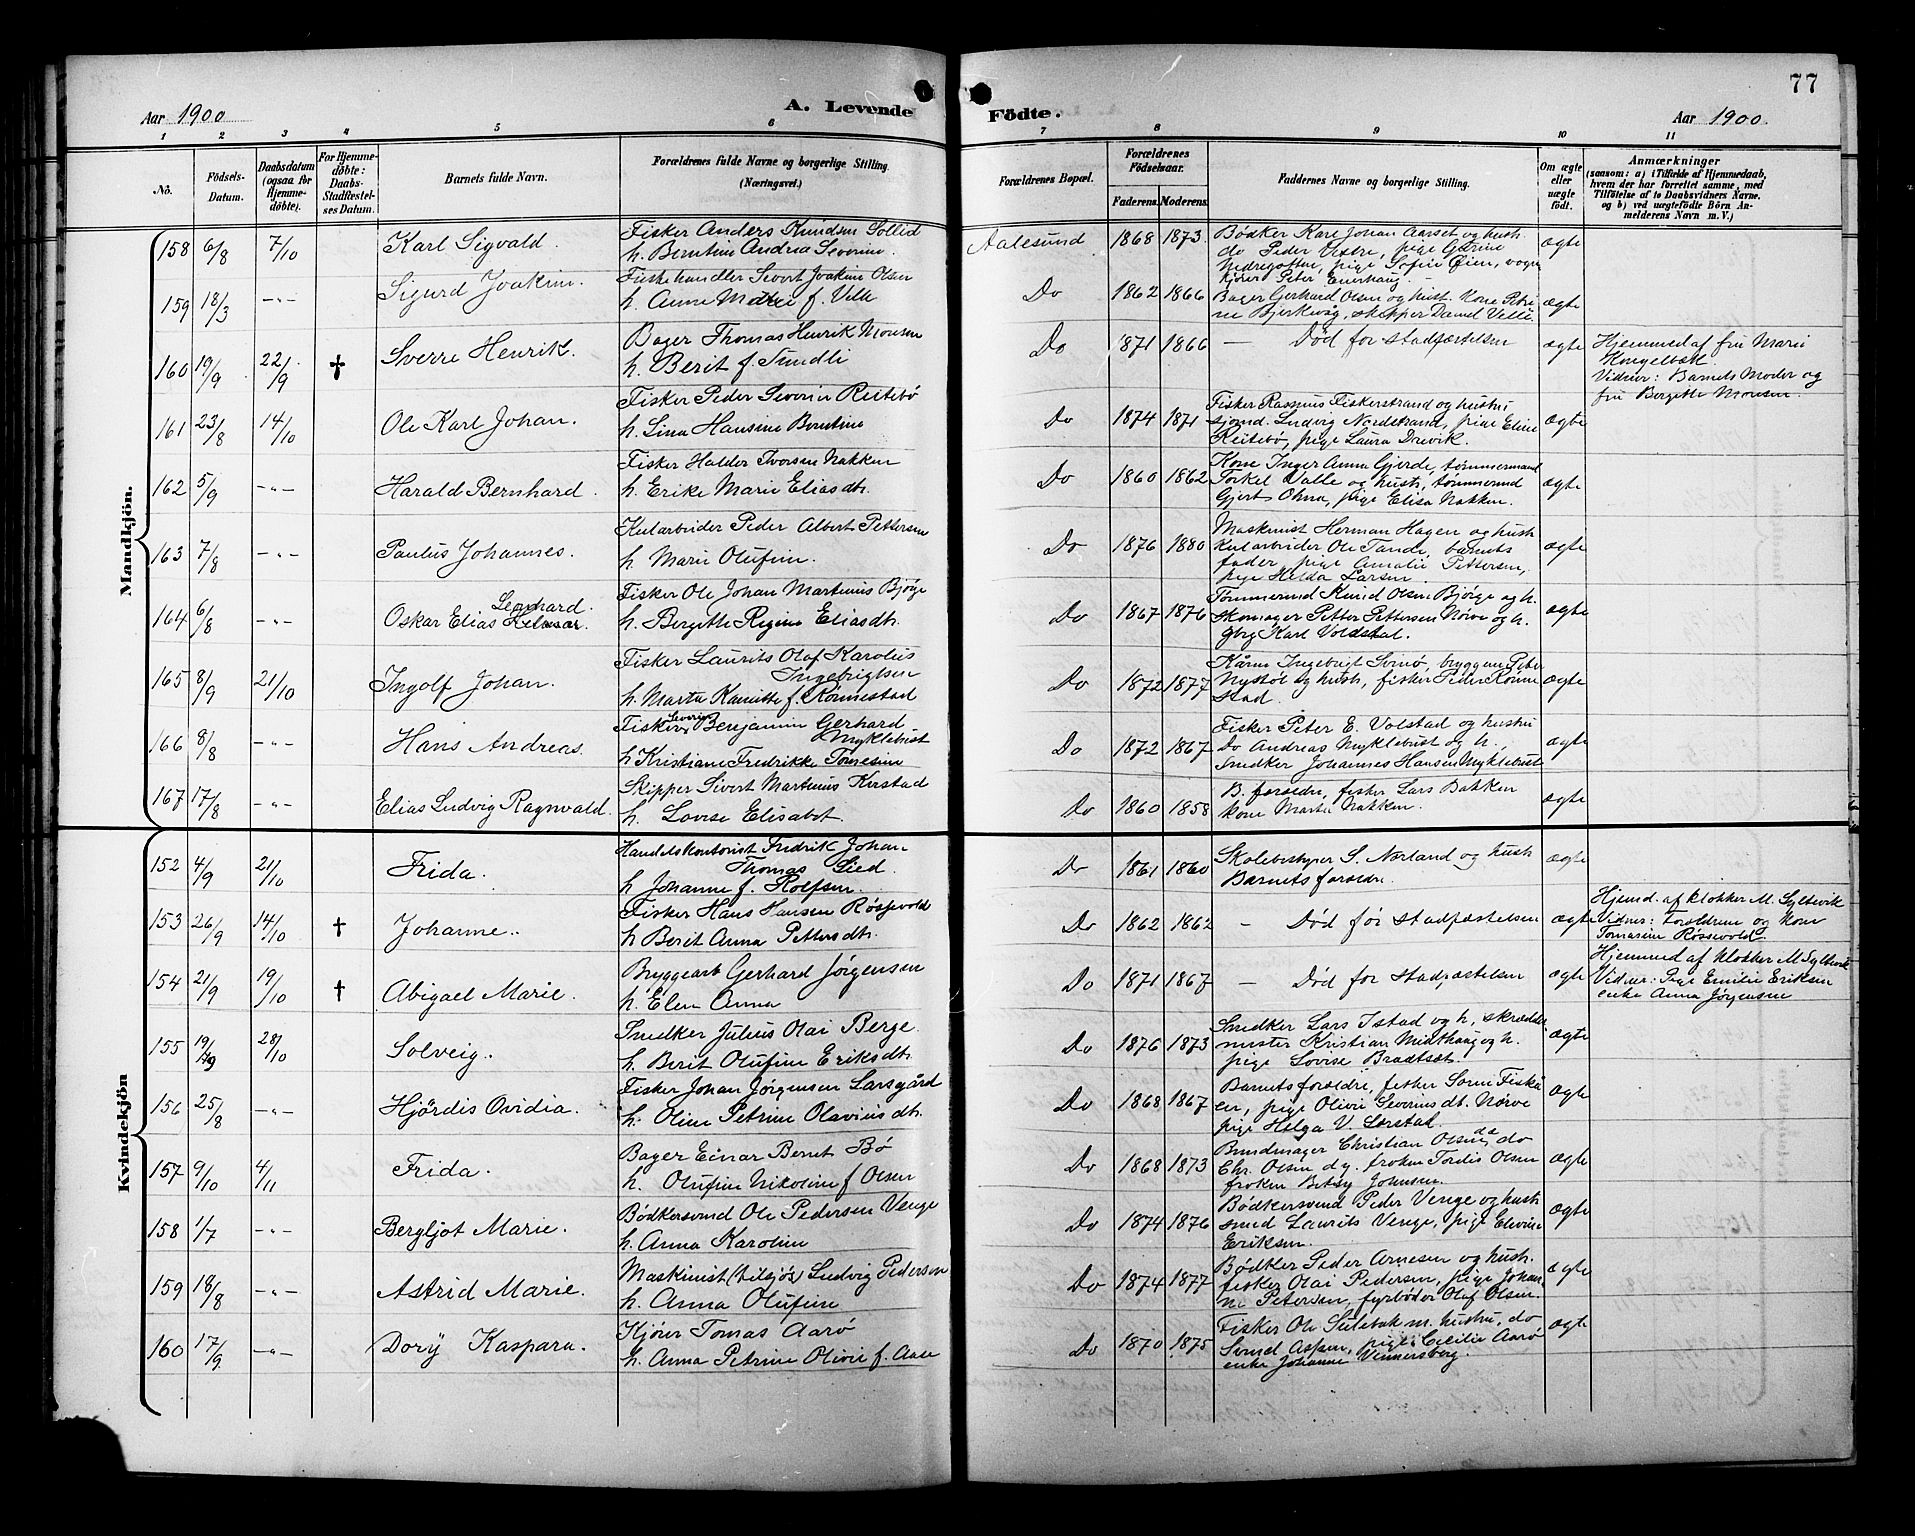 77
Aar 1900
A. Levende Födte.
Aar 1900.
1 2 3 4 5 6 7 8 9 10 11
No.
Födsels-
Datum.
Daabsdatum
(ogsaa for
Hjemme-
döbte).
For Hjemme-
döbte:
Daabs-
Stadfæstel-
ses Datum.
Barnets fulde Navn.
Forældrenes fulde Navne og borgerlige Stilling.
(Næringsvei.)
Forældrenes Bopæl.
Forældrenes
Födselsaar.
Faderens. Moderens.
Faddernes Navne og borgerlige Stilling.
Om ægte
eller
uægte
födt.
Anmærkninger
(saasom: a) i Tilfælde af Hjemmedaab,
hvem der har forrettet samme, med
Tilföielse af to Daabsvidners Navne.
og b) ved uægtefödte Börn An-
melderens Navn m. V.)
Mandkjön.
158 6/8 7/10 Karl Sigvald.
Fisker Anders Knudsen Sollid
h. Berntine Andrea Severine
Aalesund 1868 1873
Bødker Karl Johan Aarset og hust.
do Peder Vestre, pige Gurine
Nedregotten, pige Sofie Øien, vogn
kjører Peter Enerhaug
ægte
159 18/3 -„- Sigurd Joakim.
Fiskehandler Severt Joakim Olsen
h. Anne Mathie f. Velle
Do 1862 1866
Bager Gerhard Olsen og hust. kone Petri
ne Bjerkevåg, skipper Daniel Velle
ægte
160 19/9 22/9 † Sverre Henrik.
Bager Thomas Henrik Monsen
h. Berit f. Sundli
Do 1871 1866
— Død før stadfæstelsen
ægte
Hjemmed af fru Marie
Vidner: Barnets Moder og
fru Bergitte Monsen.
161 23/8 14/10 Ole Karl Johan.
Fisker Peder Severin Reitebø
h. Lina Hansine Berntine
Do 1874 1871
Fisker Rasmus Fiskerstrand og hustru
sjømd. Ludvig Nordstrand, pige Eline
Reitebø, pige Laura Drevik.
ægte
162 5/9 -„- Harald Bernhard.
Fisker Halder Iversen Nakken
h. Erike Marie Eliasdtr.
Do 1860 1862
Kone Inger Anna Gjerde, tømmermand
Torkel Valle og hust, tømmermd
Gjert Ohna, pige Elisa Nakken.
ægte
163 7/8 -„- Paulus Johannes.
Kularbeider Peder Albert Pettersen
h. Marie Olufine.
Do 1876 1880
Maskinist Herman Hagen og hust
kularbeider Ole Tande, barnets
fader, pige Amalie Pettersen,
pige Helda Larsen.
ægte
164 6/8 -„- Oskar Elias Leonhard.
Fisker Ole Johan Martinius Bjørge
h. Bergitte Regine Eliasdtr.
Do 1867 1876
Tømmermd Knud Olsen Bjørge og h.
skomager Petter Pettersen Nørve og h.
gbrg Karl Voldstal.
ægte
165 8/9 21/10 Ingolf Johan.
Fisker Laurits Olaf Karolus
Ingebrigtsen
h. Marta Kanutte f. Rønnestad
Do 1872 1877
Kårm Ingebrigt Svinø, bryggem Peter
Nystøl og hust, fisker Peder Rønne
stad.
ægte
166 8/8 -„- Hans Andreas.
Fisker Severin Benjamin Gerhard
Myklebust
h Kristiane Fredrikke Tomesen
Do 1872 1867
Fisker Peter E. Volstad og hustru
Do Andreas Myklebust og h.
Snedker Johannes Hansen Myklebust
ægte
167 17/8 -„- Elias Ludvig Ragnvald.
Skipper Sivert Martinus Kirstad
h. Lovise Elisabet.
Do 1860 1858
B. forældre, fisker Lars Bakken
kone Marte Nakken.
ægte
Kvindekjön
152 4/9 21/10 Frida.
Handelskontorist Fredrik Johan
Thomas Lied.
h Johanne f. Rolfsen.
Do 1861 1860
Skolebestyrer S. Nørland og hust
Barnets forældre.
ægte
153 26/9 14/10 † Johanne.
Fisker Hans Hansen Røssevold
h Berit Anna Pettersdtr.
Do 1862 1862
— Død før stadfæstelsen
ægte
Hjemd. af klokker M. Syltevik
Vidner: Forældrene og kone
Tomasine Røssevold.
154 21/9 19/10 † Abigael Marie.
Bryggearb Gerhard Jørgensen
h. Elen Anna
Do 1871 1867
— Død før Stadfæstelsen
ægte
Hjemmed af klokker M Syltevik
Vidner: Pige Emilie Eriksen
enke Anna Jørgensen
155 19/9 28/10 Solveig.
Snedker Julius Olai Berge.
h. Berit Olufine Eriksdtr.
Do 1876 1873
Snedker Lars Istad og h, skrædder
mester Kristian Midthaug og h.
pige Lovise Brautset.
ægte
156 25/8 -„- Hjördis Ovidia.
Fisker Johan Jørgensen Larsgård
h. Oline Petrine Olaviusdtr.
Do 1868 1867
Barnets forældre, fisker Søren Fiskå
er, pige Olivie Severinsdt. Nørve
pige Helga V. Lerstad.
ægte
157 9/10 4/11 Frida.
Bager Einar Bernt Bø
h. Olufine Nikoline f Olsen
Do 1868 1873
Bundmager Christian Olsen da do
Chr. Olsen d.y. frøken Tordis Olsen
frøken Betsy Johnsen.
ægte
158 1/7 -„- Bergljot Marie.
Bødkersvend Ole Pedersen Venge
h. Anna Karoline
Do 1874 1876
Bødkersvend Peder Venge og hust
smed Laurits Venge, pige Elevine
Eriksen.
ægte
159 18/8 -„- Astrid Marie.
Maskinist (tilsjøs) Ludvig Pedersen
h. Anna Olufine
Do 1874 1877
Bødker Peder Arnesen og hust.
fisker Olai Pedersen, pige Johan
ne Petersen, fyrbøder Olaf Olsen.
ægte
160 17/9 -„- Dorÿ Kaspara.
Kjører Tomas Aarø
h. Anna Petrine Olivie f. Aase
Do 1870 1875
Fisker Ole Sulebak m. hustru, do
Svend Aspen, pige Cecilie Aarø
enke Johanne Vennersberg.
ægte